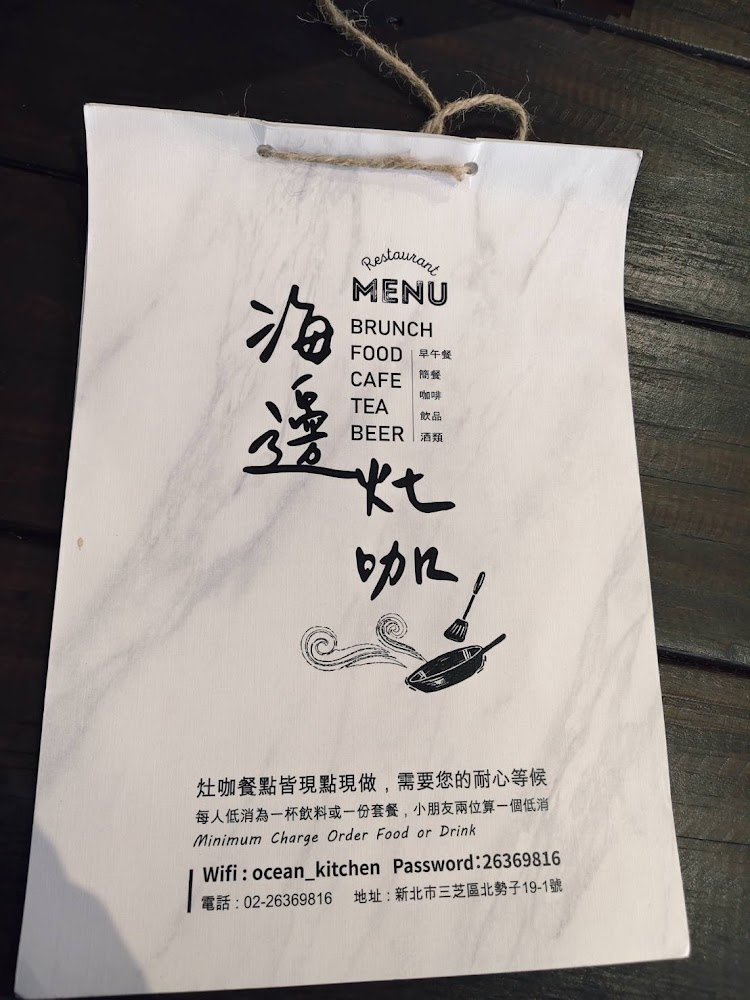 Restaurant
MENU
海邊
灶咖
BRUNCH
FOOD 早午餐
CAFE 簡餐
TEA 咖啡
BEER 飲品
酒類
灶咖餐點皆現點現做，需要您的耐心等候
每人低消為一杯飲料或一份套餐，小朋友兩位算一個低消
Minimum Charge Order Food or Drink
Wifi : ocean_kitchen Password:26369816
電話 : 02-26369816 地址 : 新北市三芝區北勢子19-1號